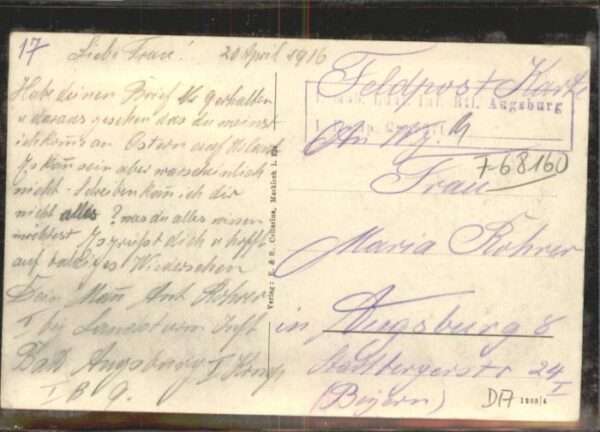 17
Liebe Frau! 20 April 1916
Habe deinen Brief Nr 9 erhalten
u daraus gesehen das du meinst
ich kom̄ an Ostern auf Urlaub
Ja kan̄ sein aber warscheinlich
nicht. Schreiben kan ich dir
nicht alles? was du alles wissen
möchtest Es grüßt dich u hofft
auf baldiges Wiedersehen
Dein Man̄ Ant Rohrer
bei Landst vom Inft
Batl Augsburg I Komp
I B 9.
Verlag: E. & B.
Feldpost Karte
Inf. Btl. Augsburg
An
768160
Frau
Maria Rohrer
in Augsburg 8
Stadtbergerstr 24
I
(Bayern)
DA 1209/4